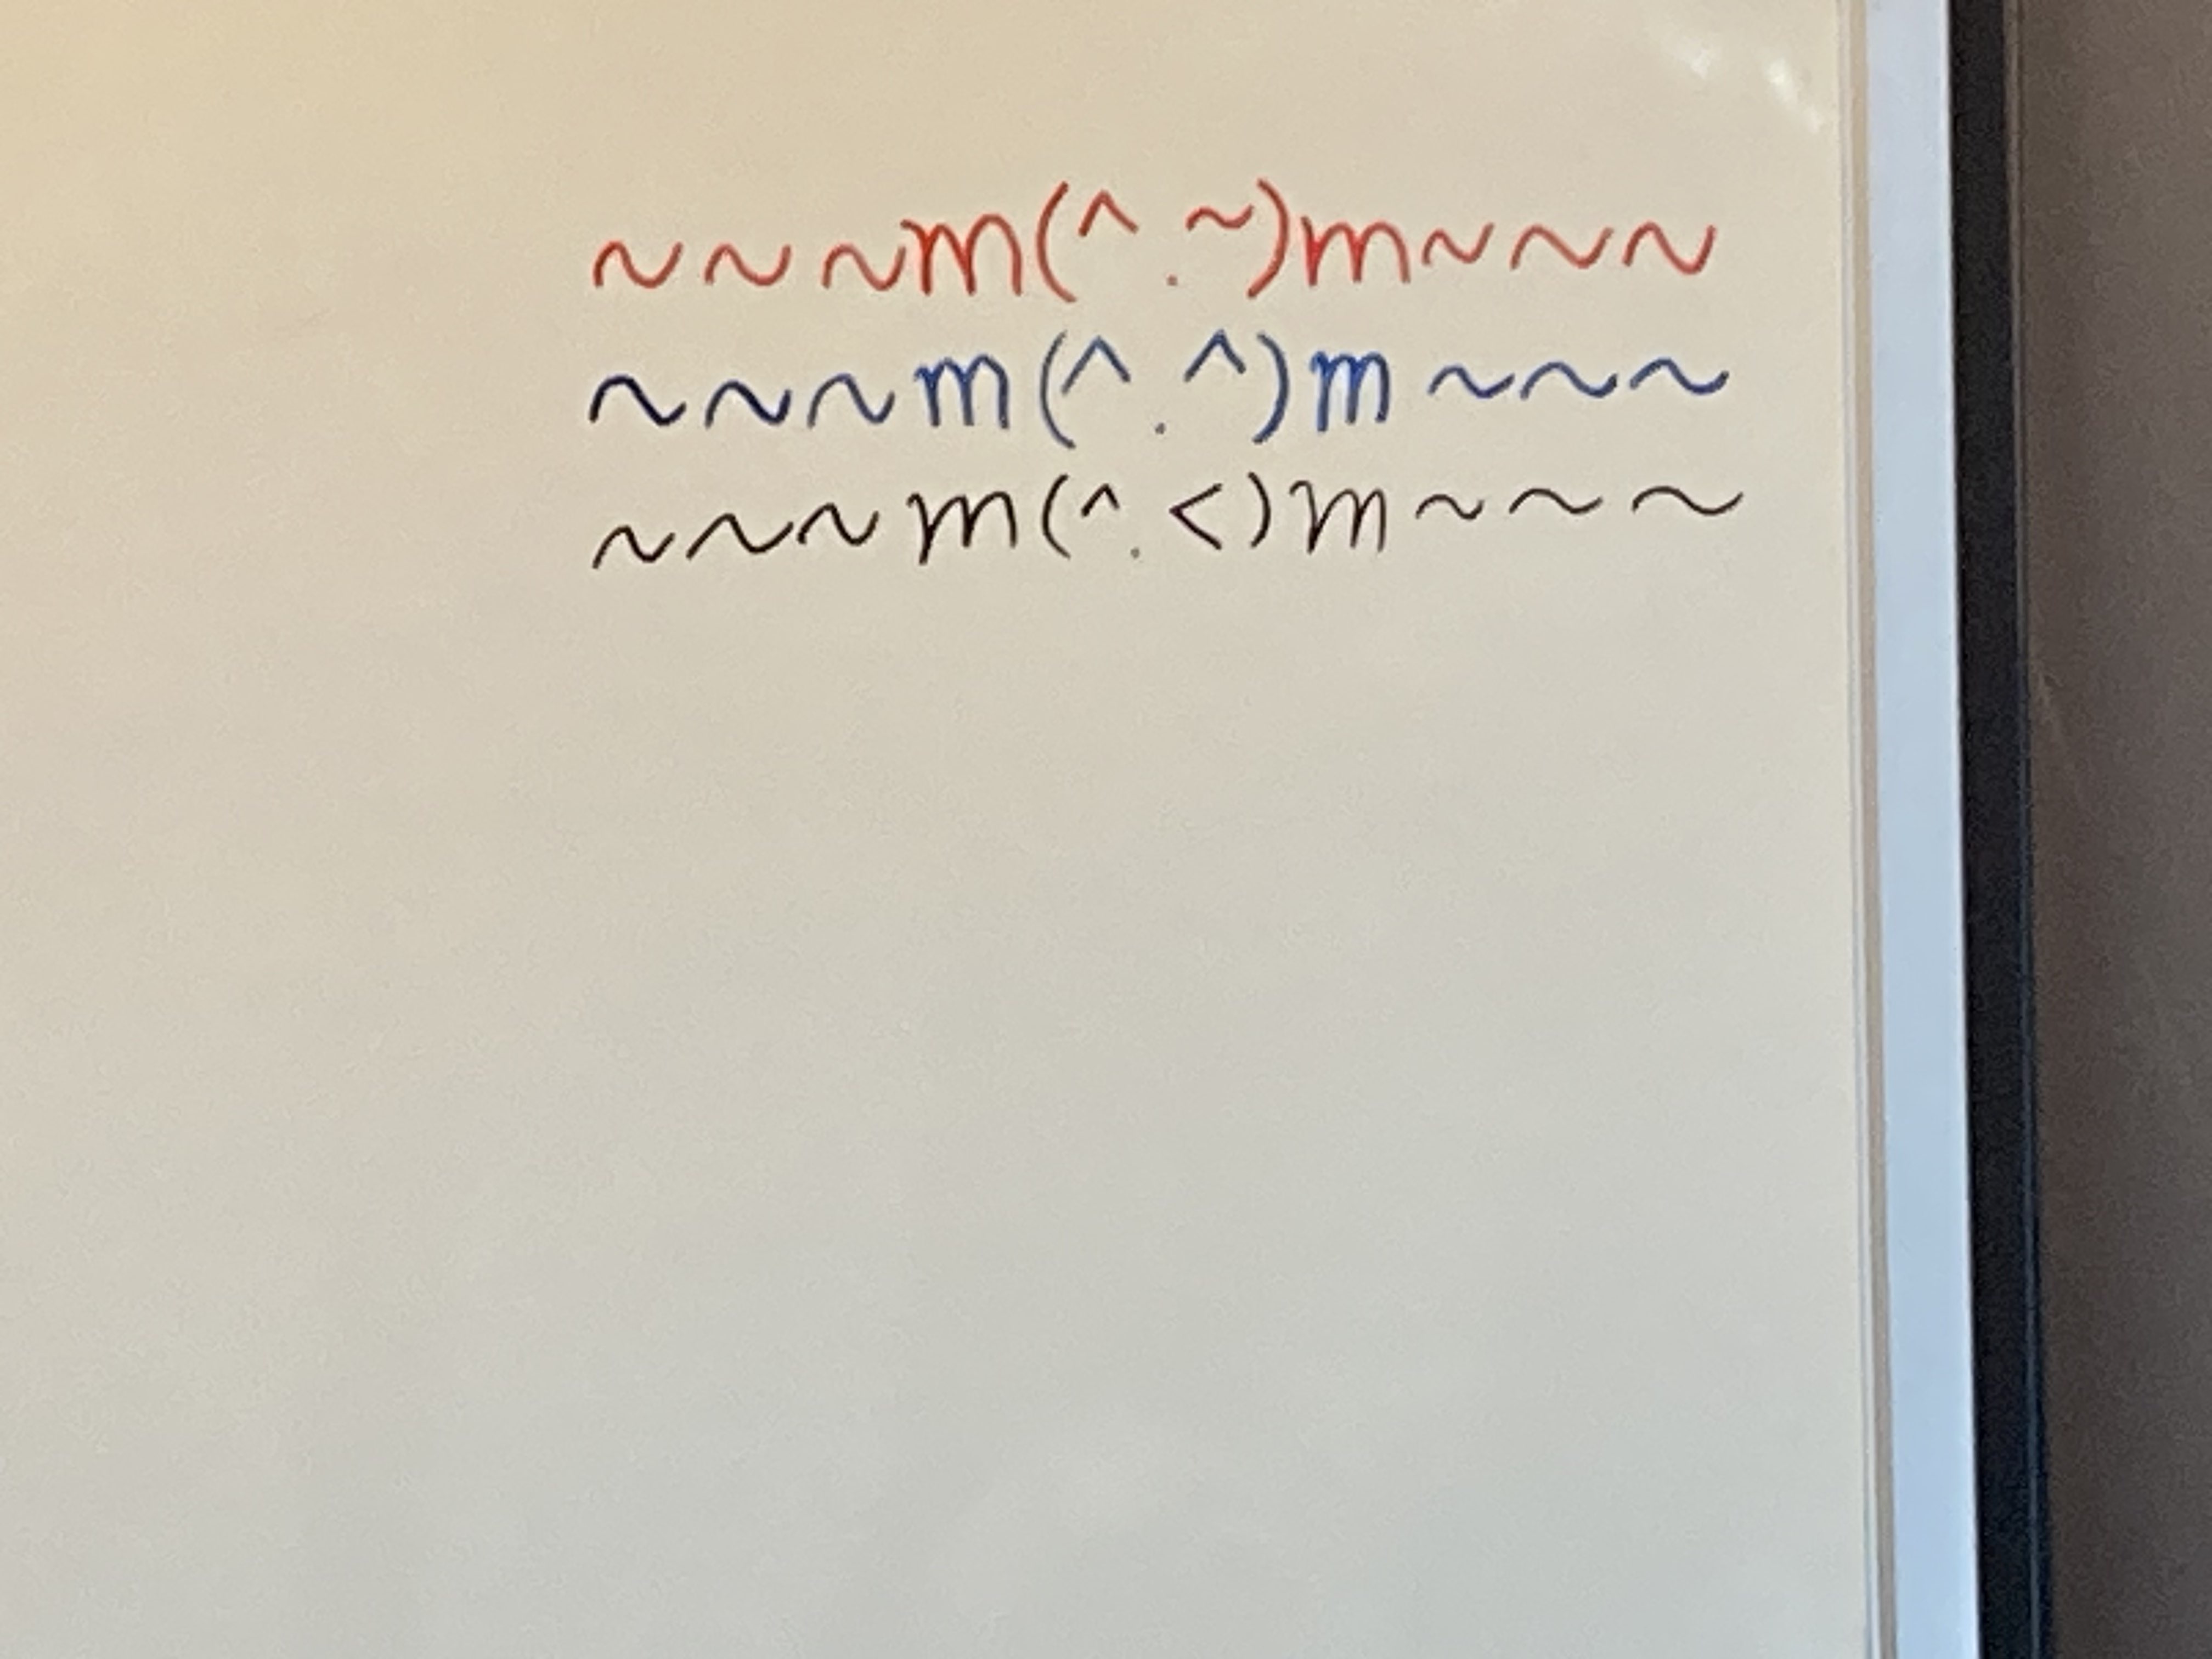 ~~~m(^.~)m~~~
~~~m(^.^)m~~~
~~~m(^.<)m~~~